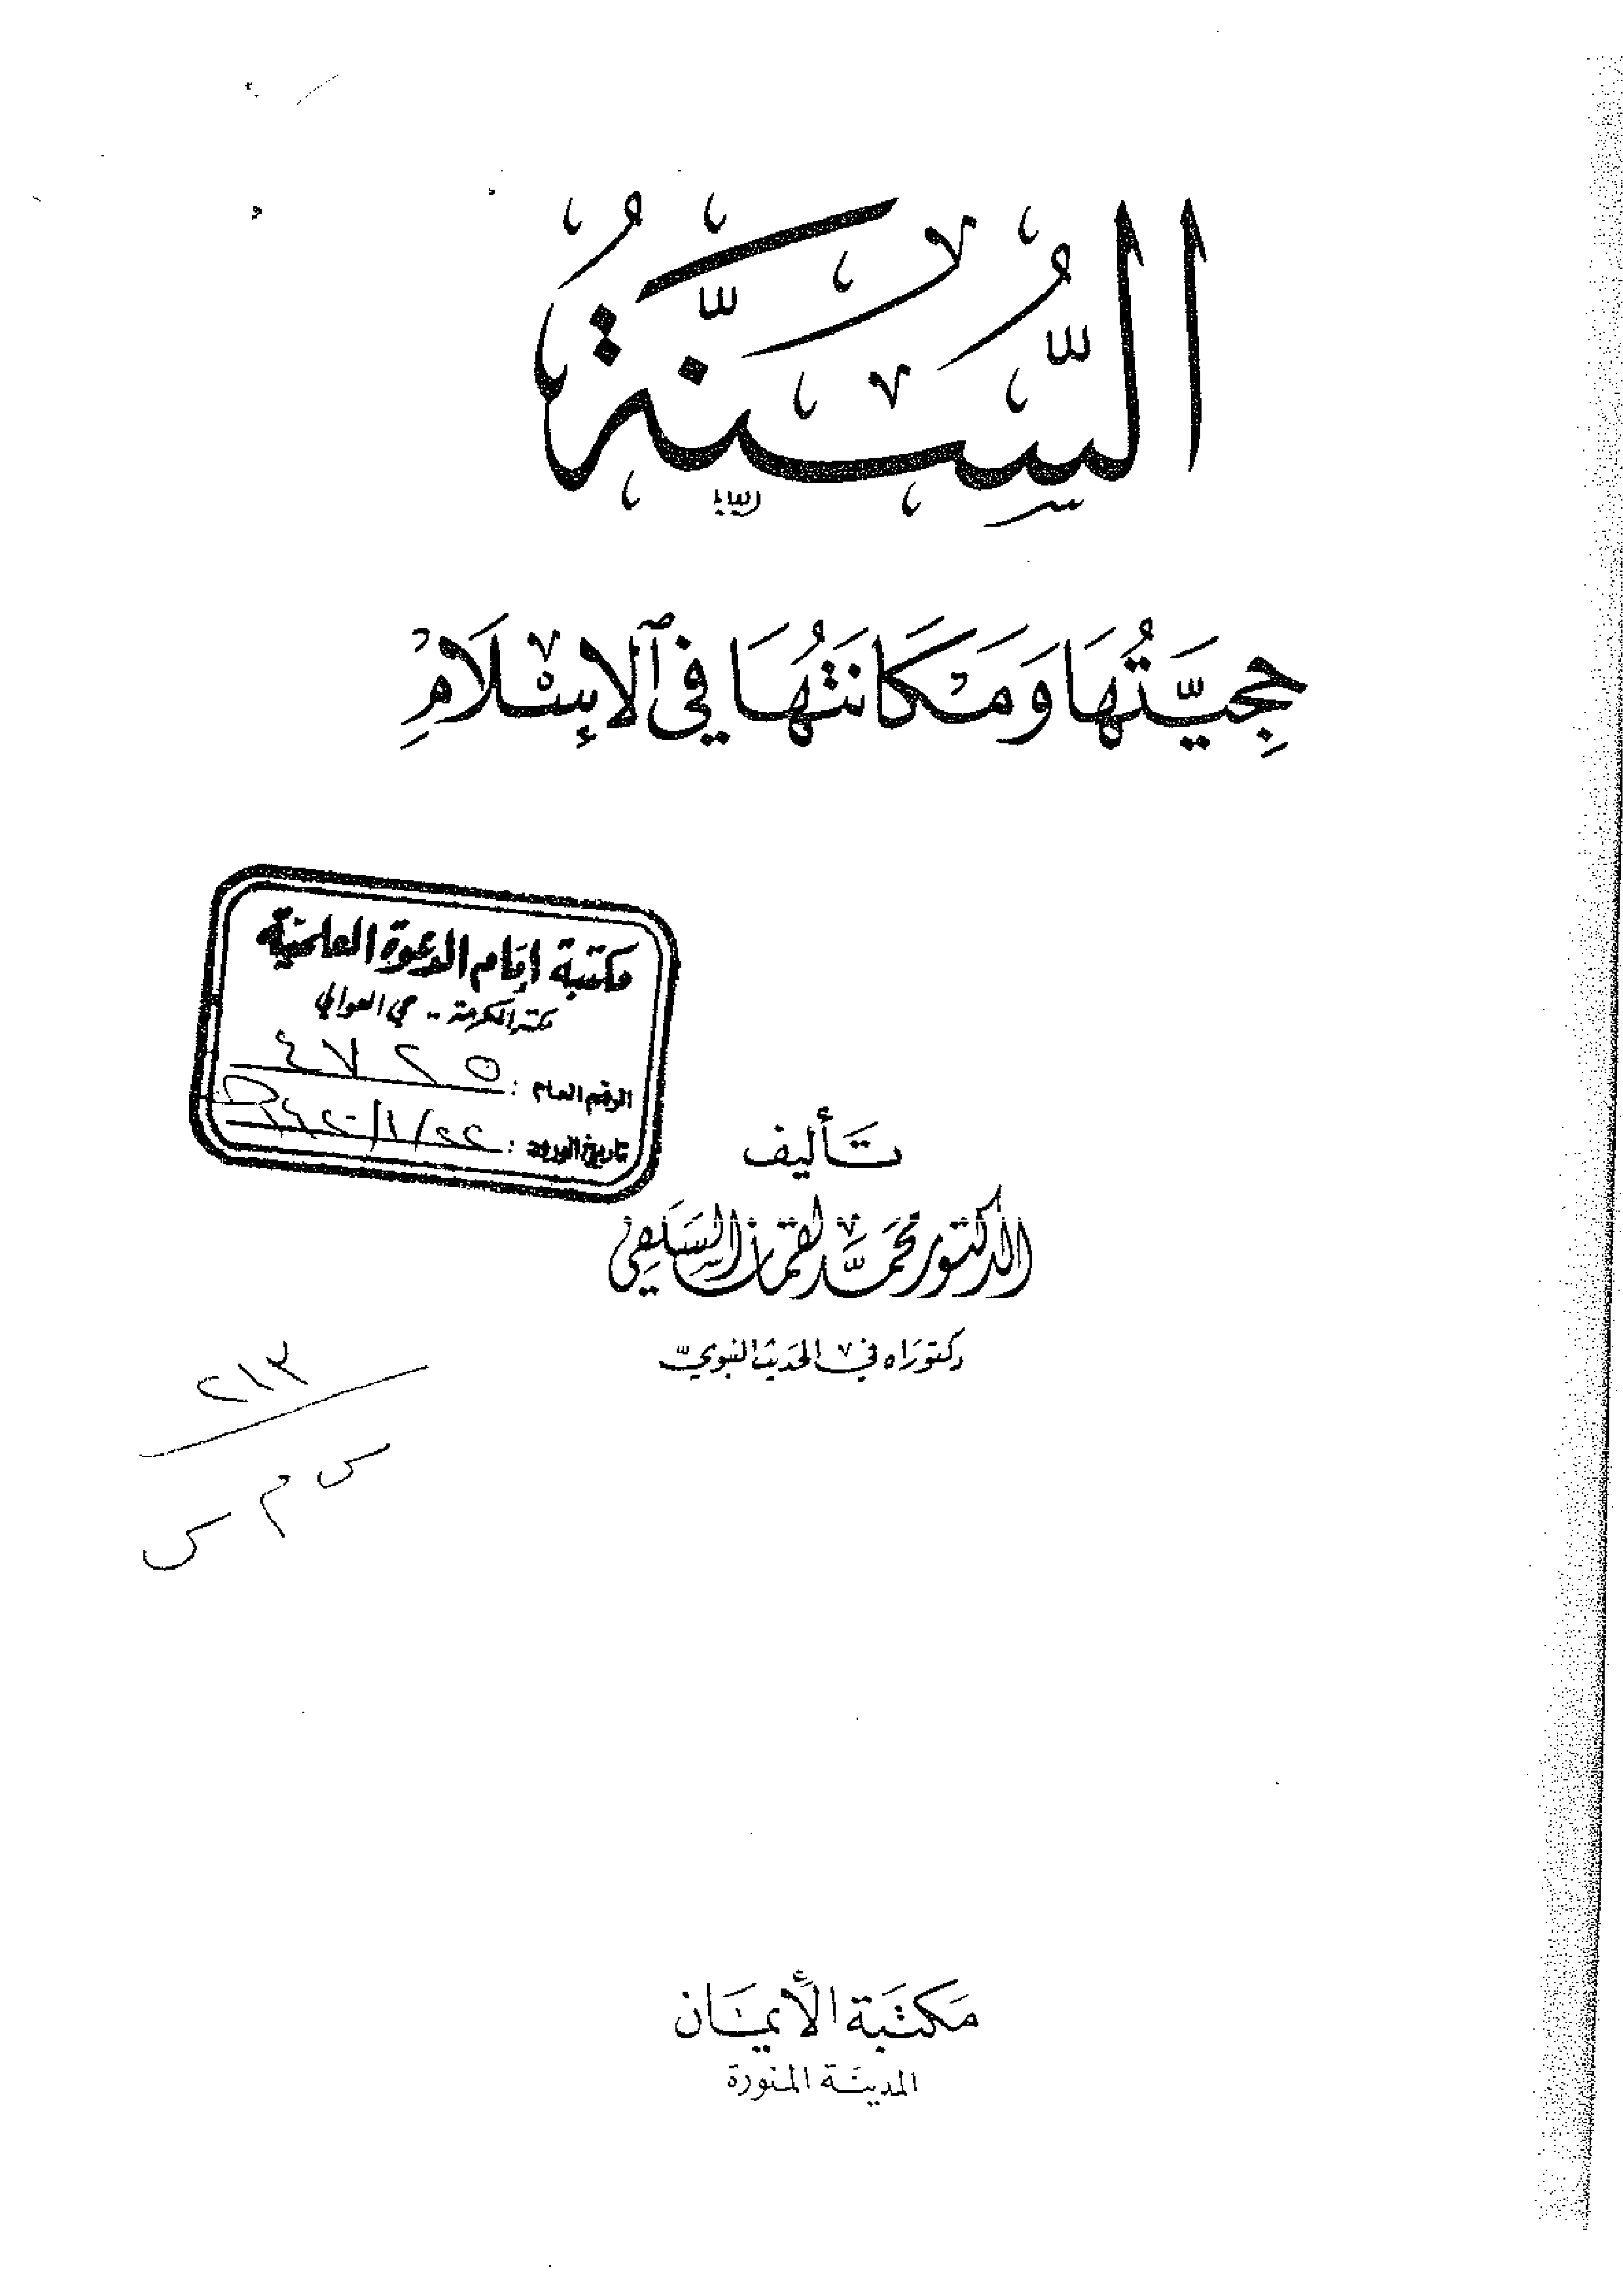 السُّنَّةُ
حُجِّيَّتُهَا وَمَكَانَتُهَا فِي ٱلْإِسْلَامِ
مكتبة إمام الدعوة العلمية
مكة المكرمة - حي العوالي
الرقم العام : ٤٧٢٥
تاريخ الورود :
تأليف
الدكتور محمد لقمان السلفي
دكتوراه في الحديث النبوي
٢١٣
س م س
مكتبة الأيمان
المدينة المنورة